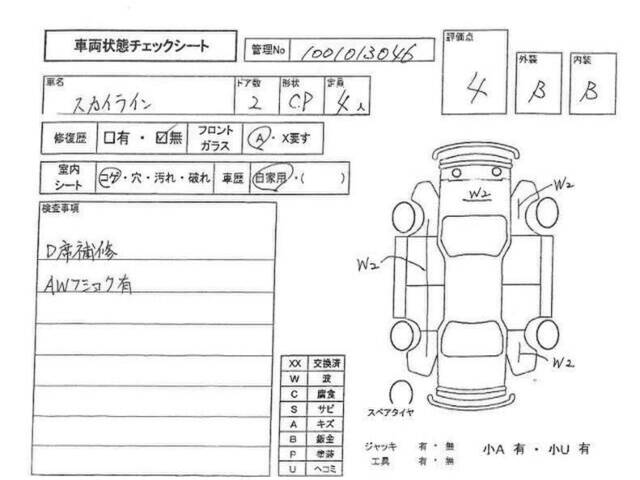 車両状態チェックシート
管理No 1001013046
評価点 4
外装 B
内装 B
車名 スカイライン
ドア数 2
形状 C.P
定員 4人
修復歴 □有・☑無
フロントガラス A・X要す
室内シート コゲ・穴・汚れ・破れ
車歴 自家用・( )
検査事項
D席補修
AWフショク有
W2
W2
W2
W2
XX 交換済
W 波
C 腐食
S サビ
A キズ
B 鈑金
P 塗装
U ヘコミ
スペアタイヤ
ジャッキ 有・無
工具 有・無
小A 有・小U 有